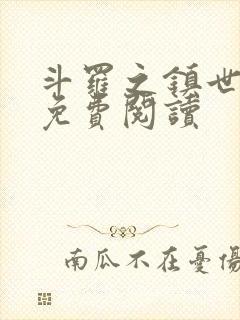 斗羅之鎮世
免費閱讀
南瓜不在憂傷